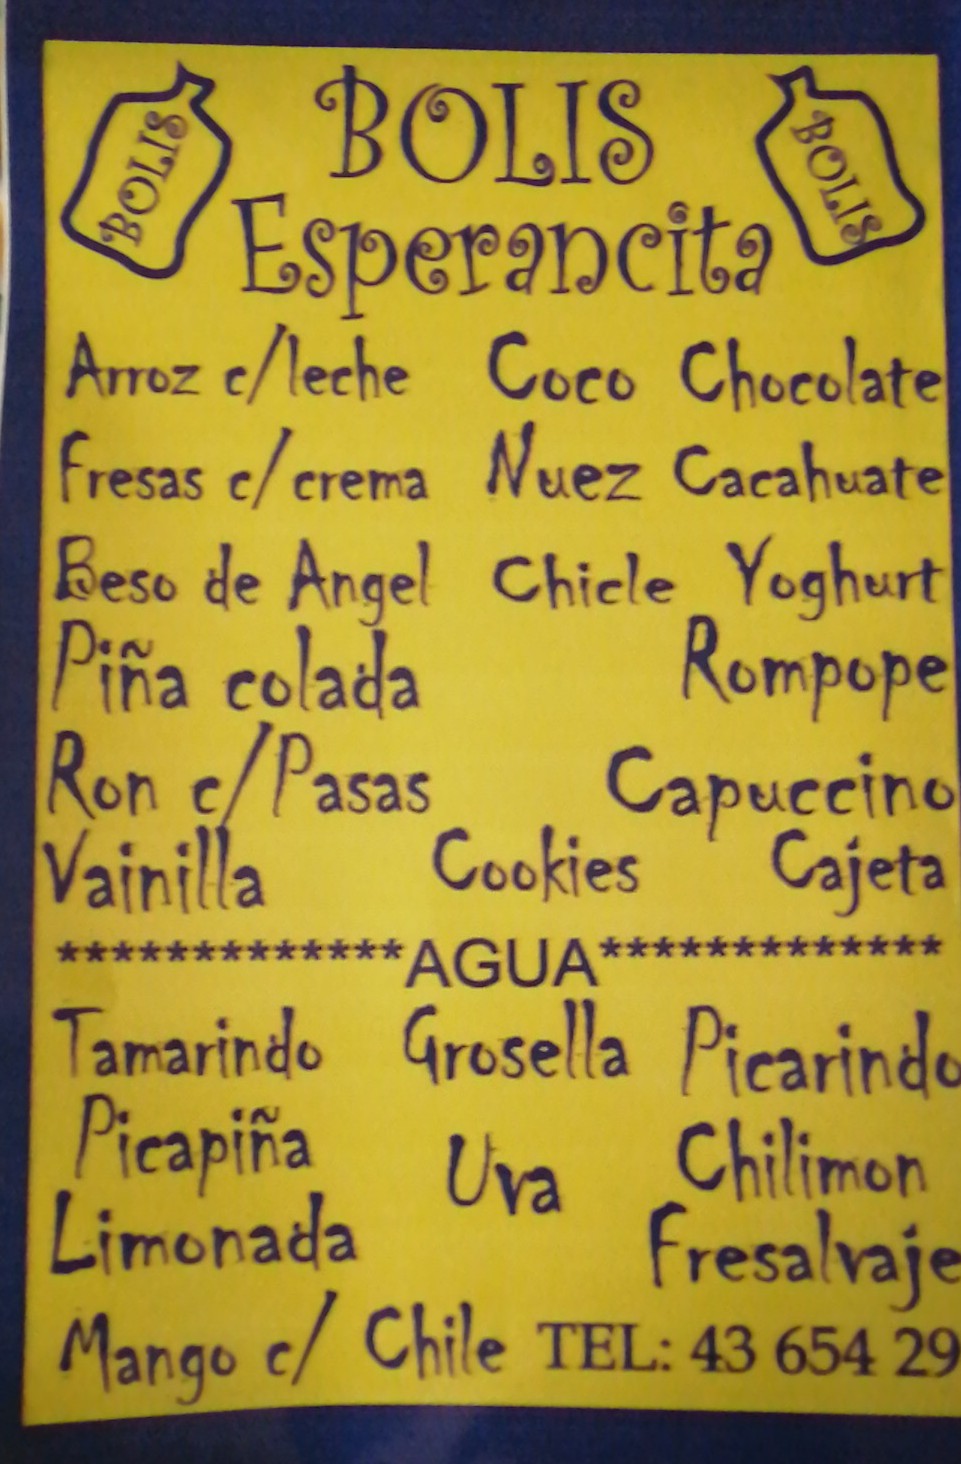 BOLIS
BOLIS
BOLIS
Esperancita
Arroz c/leche Coco Chocolate
Fresas c/crema Nuez Cacahuate
Beso de Angel Chicle Yoghurt
Piña colada Rompope
Ron c/Pasas Capuccino
Vainilla Cookies Cajeta
*************AGUA*************
Tamarindo Grosella Picarindo
Picapiña Uva Chilimon
Limonada Fresalvaje
Mango c/ Chile TEL: 43 654 29